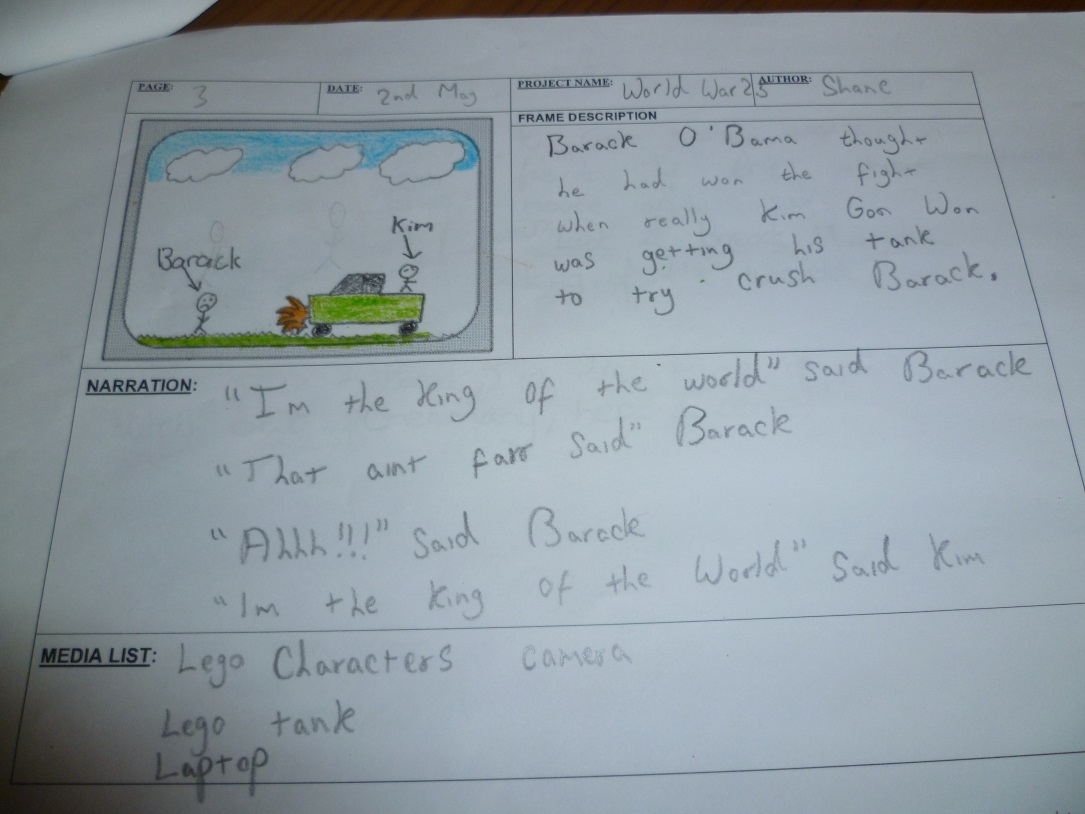 PAGE: 3 DATE: 2nd May PROJECT NAME: World War 25 AUTHOR: Shane
FRAME DESCRIPTION
Barack O'Bama thought
he had won the fight
when really Kim Gon Won
was getting his tank
to try crush Barack.
Kim
Barack
NARRATION: "Im the King of the world" said Barack
"That aint farr said" Barack
"Ahhh!!!" said Barack
"Im the King of the World" said Kim
MEDIA LIST: Lego Characters camera
Lego tank
Laptop